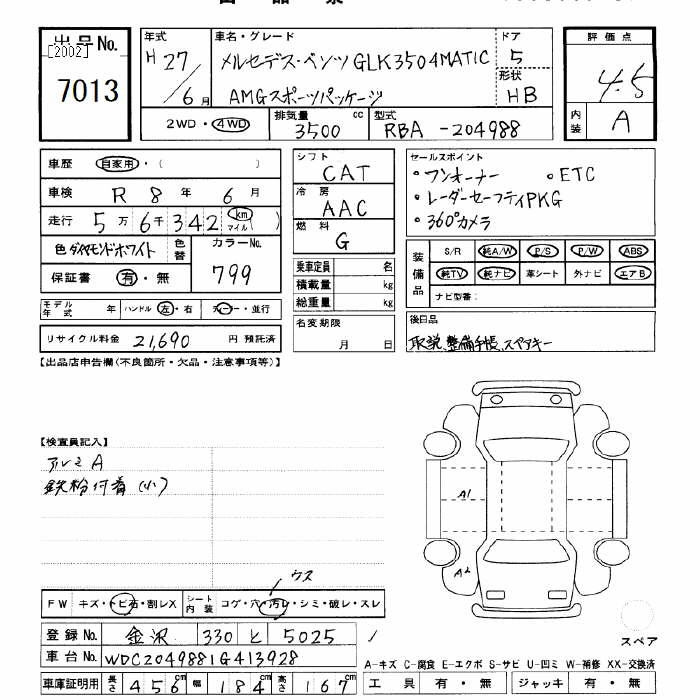 出品No.
[2002]
7013
年式
H 27/6月
車名・グレード
メルセデス・ベンツ GLK350 4MATIC
AMGスポーツパッケージ
ドア
5
形状
HB
2WD・4WD
排気量
3500 cc
型式
RBA -204988
評価点
4.5
内装
A
車歴 自家用・( )
車検 R 8 年 6 月
走行 5万6千342 km マイル ( )
色 ダイヤモンドホワイト 色替
カラーNo.
799
保証書 有・無
モデル年式 年 ハンドル 左・右 ディーラー・並行
リサイクル料金 21,690 円 預託済
シフト
CAT
冷房
AAC
燃料
G
乗車定員 名
積載量 kg
総重量 kg
名変期限
月 日
セールスポイント
・ワンオーナー ・ETC
・レーダーセーフティPKG
・360°カメラ
装備品
S/R 純A/W P/S P/W ABS
純TV 純ナビ 革シート 外ナビ エアB
ナビ型番:
後日品
取説、整備手帳、スペアキー
【出品店申告欄(不良箇所・欠品・注意事項等)】
【検査員記入】
アルミ A
鉄粉付着(小)
A1
A2
ウス
FW キズ・トビ石・割レX
シート内装 コゲ・穴・汚レ・シミ・破レ・スレ
登録No. 金沢 330 と 5025
車台No. WDC2049881G413928
車庫証明用 長さ 456 cm 幅 184 cm 高さ 167 cm
スペア
A-キズ C-腐食 E-エクボ S-サビ U-凹ミ W-補修 XX-交換済
工具 有・無 ジャッキ 有・無